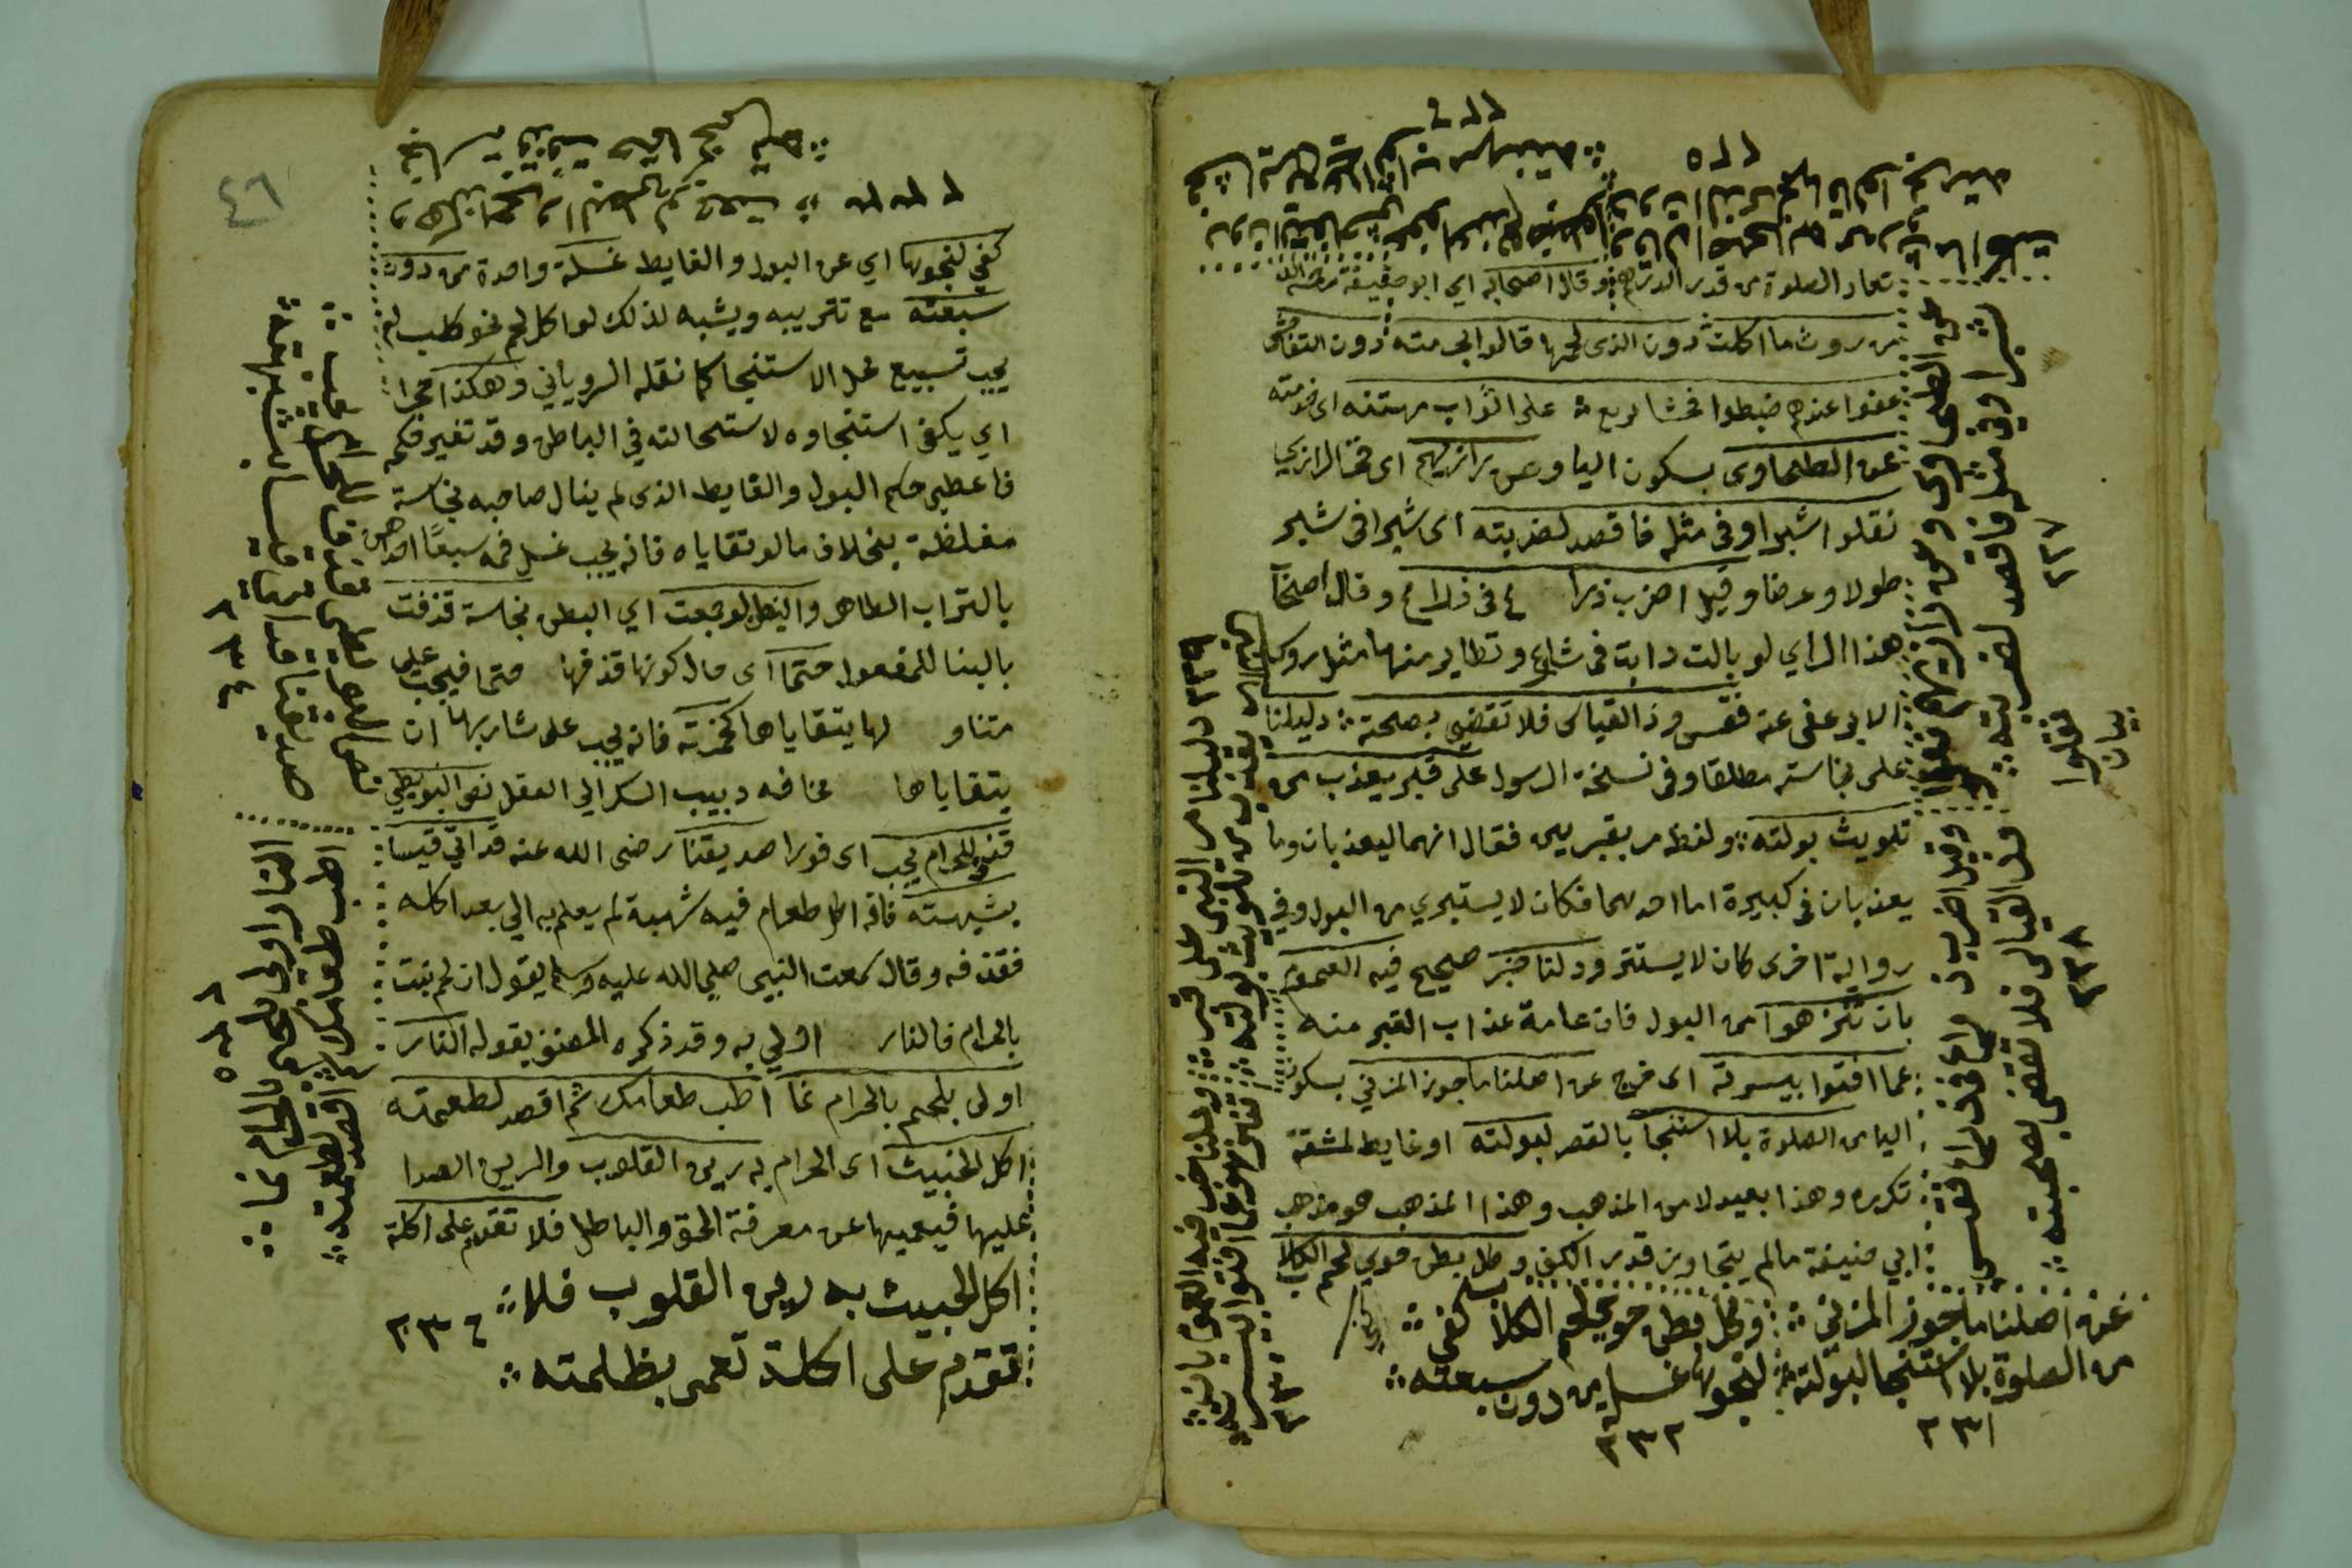 ٢٢٥
٢٢٦
تعاد الصلوة من قدر الدرهم وقال اصحابه اي ابو حنيفة
من روث ما اكلت دون الذى لحمها قالوا بحرمته دون التفاحش
عفوا عندهم ضبطوا فحشا بربع على اثواب مهنته اى خدمته
عن الطحاوى بسكون اليا وعن رازيهم اى فخر الرازي
نقلوا شبرا وفى مثله فاقصد لضربته اى شبرا فى شبر
طولا وعرضا وقيل اضرب ذراع فى ذراع وقال اصحا
هذا الراي لو بالت دابة فى شارع وتطاير منها مثل روس
الابر عفى عنه فقس وذا القياس فلا تقضي بصحته دليلنا
على نجاسته مطلقا وفى نسخة الرسول على قبر يعذب من
تلويث بولته ولفظه مر بقبرين فقال انهما ليعذبان وما
يعذبان فى كبيرة اما احدهما فكان لا يستبري من البول وفي
رواية اخرى كان لا يستتر ودلنا خبر صحيح فيه العموم
بان تنزهوا من البول فان عامة عذاب القبر منه
عما افتوا بيسرته اى خرج عن اصلنا ما جوز المزني بسكون
اليا من الصلوة بلا استنجا بالقصر لبولته او غايط لمشقة
تكرره وهذا بعيد لا من المذهب وهذا المذهب هو مذهب
ابي حنيفة مالم يتجاوز قدر الكف وكل بطن حوي لحم الكلاب
عن اصلنا ما جوز المزني وكل بطن حوي لحم الكلاب كفى
من الصلوة بلا استنجا لبولته لنجوها غسلة من دون سبعته
٢٣١
٢٣٢
شبرا وفي مثله فاقصد لضربته
٢٢٧
نقلوا
بيان
وقيل اضرب ذراع فى ذراع فقس
وذ القياس فلا تقضى بصحته
٢٢٨
٢٢٩
دليلنا مر النبى على قبر
يعذب من تلويث بولته
٢٣٠
٤٦
٢٣٣
كفي لنجوها اي عن البول والغايط غسلة واحدة من دون
سبعته مع تتريبه ويشبه لذلك لو اكل لحم نحو كلب لم
يجب تسبيع محل الاستنجا كما نقله الروياني وهكذا مجرا
اي يكفى استنجاوه لاستحالته في الباطن وقد تغير فكم
فاعطي حكم البول والغايط الذى لم ينال صاحبه نجاسة
مغلظة بخلاف ما لو تقاياه فانه يجب غسل فمه سبعا احداهن
بالتراب الطاهر والبطن لو جمعت اي البطن نجاسة قذفت
بالبنا للمفعول حتما اى حال كونها قذفها حتما فيجب على
متناو لها يتقاياها كخمرته فانه يجب على شاربها ان
يتقاياها مخافه دبيب السكر الي العقل نص البويطي
قذف الحرام يجب اى فورا صديقنا رضى الله عنه قد اتي قيسا
بشبهته فانه اكل طعام فيه شبهة لم يعلم به الي بعد اكله
فقذفه وقال سمعت النبي صلي الله عليه وسلم يقول ان لحم نبت
بالحرام فالنار اولي به وقد ذكره المصنف بقوله النار
اولى بلحم بالحرام نما اطب طعامك ثم اقصد لطعمته
اكل الخبيث اى الحرام به رين القلوب والرين الصدا
عليها فيعميها عن معرفة الحق والباطل فلا تقدم على اكلة
اكل الخبيث به رين القلوب فلا
تقدم على اكلة تعمى بظلمته
٢٣٦
٢٣٤
النار اولى بلحم بالحرام نما
اطب طعامك ثم اقصد لطعمته
٢٣٥